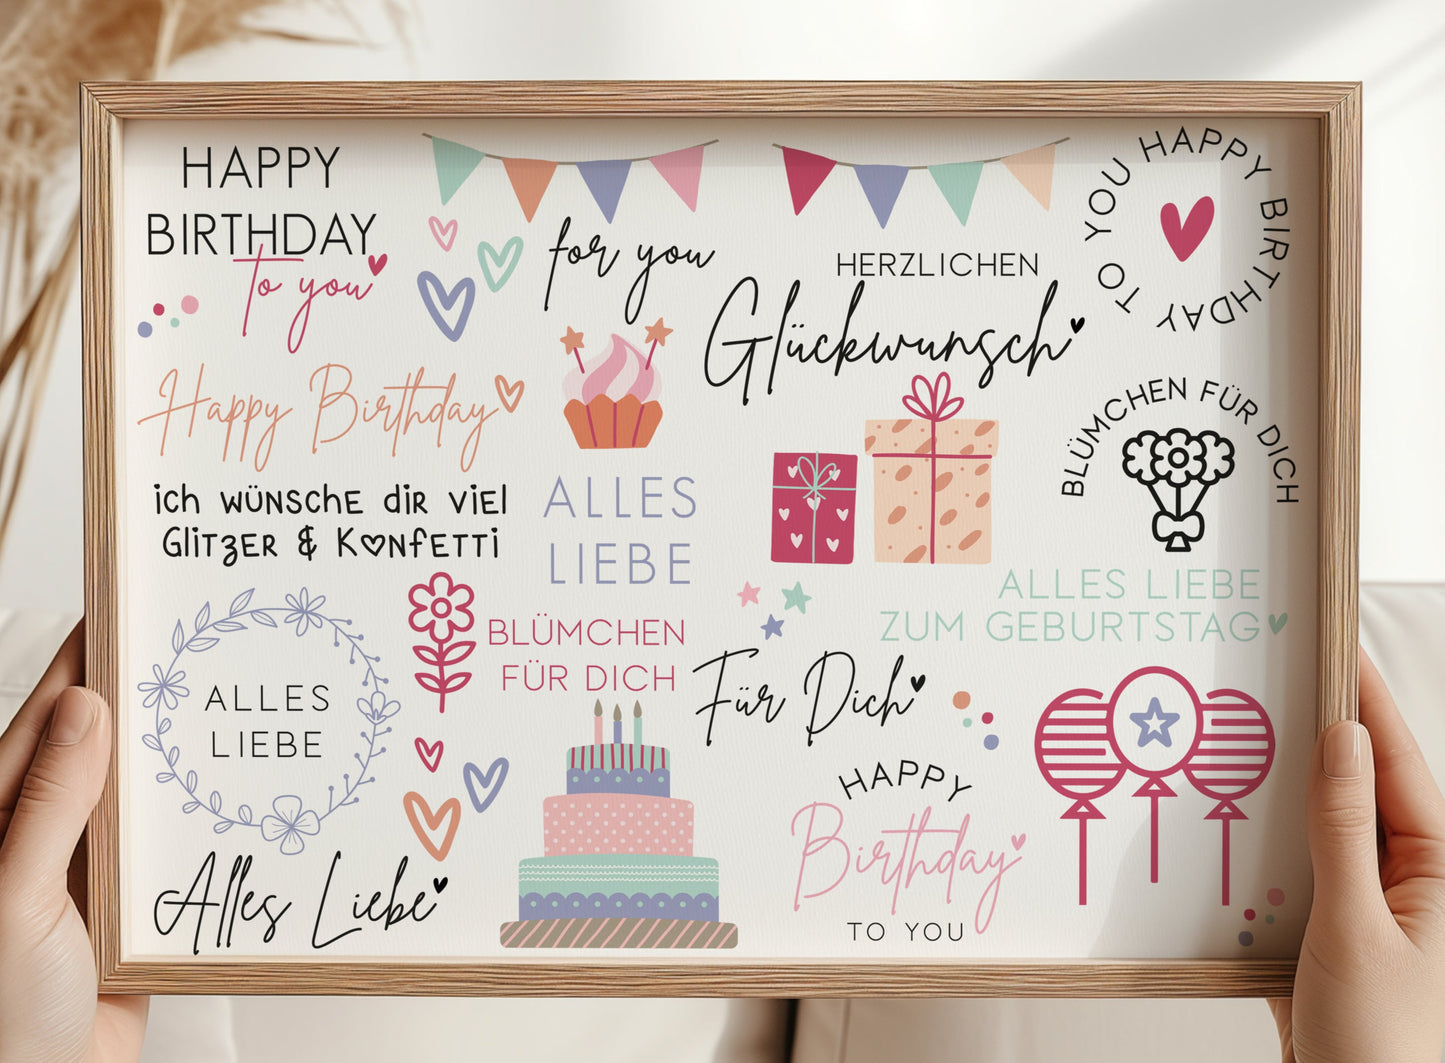 HAPPY
BIRTHDAY
to you
for you
HERZLICHEN
Glückwunsch
HAPPY BIRTHDAY TO YOU
Happy Birthday
BLÜMCHEN FÜR DICH
ich wünsche dir viel
Glitzer & Konfetti
ALLES
LIEBE
ALLES LIEBE
ZUM GEBURTSTAG
BLÜMCHEN
FÜR DICH
ALLES
LIEBE
Für Dich
HAPPY
Birthday
TO YOU
Alles Liebe